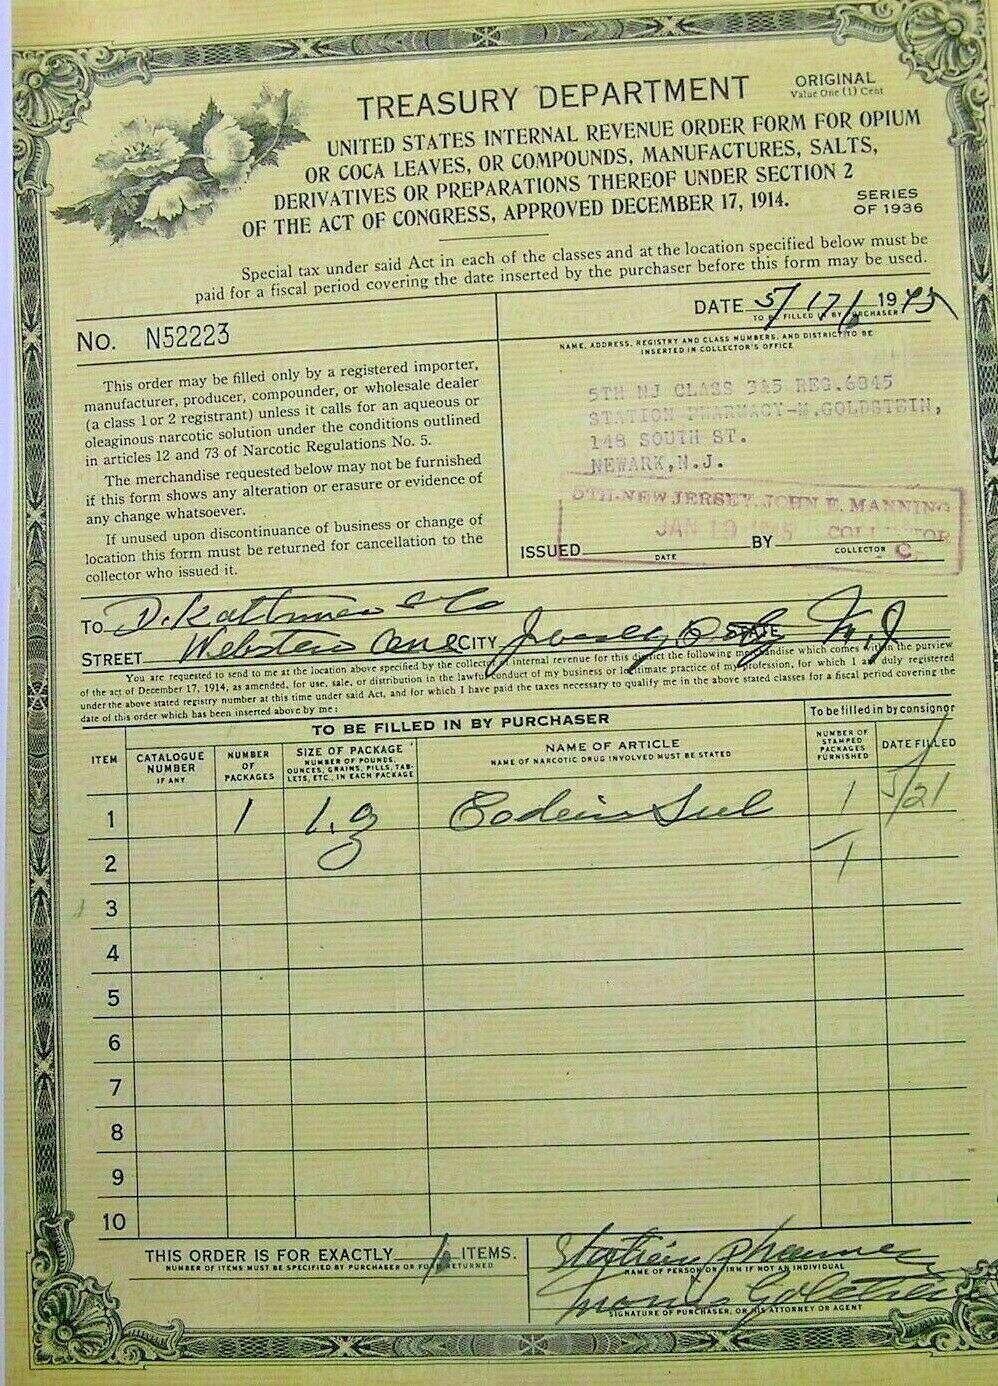 TREASURY DEPARTMENT
ORIGINAL
Value One (1) Cent
UNITED STATES INTERNAL REVENUE ORDER FORM FOR OPIUM
OR COCA LEAVES, OR COMPOUNDS, MANUFACTURES, SALTS,
DERIVATIVES OR PREPARATIONS THEREOF UNDER SECTION 2
OF THE ACT OF CONGRESS, APPROVED DECEMBER 17, 1914.
SERIES
OF 1936
Special tax under said Act in each of the classes and at the location specified below must be
paid for a fiscal period covering the date inserted by the purchaser before this form may be used.
No. N52223
DATE 5/17/ 1945
TO BE FILLED IN BY PURCHASER
NAME, ADDRESS, REGISTRY AND CLASS NUMBERS, AND DISTRICT TO BE
INSERTED IN COLLECTOR'S OFFICE
This order may be filled only by a registered importer,
manufacturer, producer, compounder, or wholesale dealer
(a class 1 or 2 registrant) unless it calls for an aqueous or
oleaginous narcotic solution under the conditions outlined
in articles 12 and 73 of Narcotic Regulations No. 5.
The merchandise requested below may not be furnished
if this form shows any alteration or erasure or evidence of
any change whatsoever.
If unused upon discontinuance of business or change of
location this form must be returned for cancellation to the
collector who issued it.
5TH NJ CLASS 3&5 REG.6845
STATION PHARMACY-M.GOLDSTEIN,
148 SOUTH ST.
NEWARK, N.J.
5TH NEW JERSEY JOHN E. MANNING
JAN 19 COLLECTOR
ISSUED BY C.
DATE COLLECTOR
TO D. & Co
STREET Webster Ave CITY Jersey City STATE N.J
You are requested to send to me at the location above specified by the collector of internal revenue for this district the following merchandise which comes within the purview
of the act of December 17, 1914, as amended, for use, sale, or distribution in the lawful conduct of my business or legitimate practice of my profession, for which I am duly registered
under the above stated registry number at this time under said Act, and for which I have paid the taxes necessary to qualify me in the above stated classes for a fiscal period covering the
date of this order which has been inserted above by me:
TO BE FILLED IN BY PURCHASER
To be filled in by consignor
ITEM
CATALOGUE
NUMBER
IF ANY
NUMBER
OF
PACKAGES
SIZE OF PACKAGE
NUMBER OF POUNDS,
OUNCES, GRAINS, PILLS, TAB-
LETS, ETC., IN EACH PACKAGE
NAME OF ARTICLE
NAME OF NARCOTIC DRUG INVOLVED MUST BE STATED
NUMBER OF
STAMPED
PACKAGES
FURNISHED
DATE FILLED
1 1 1 ℥ Codeine Sul 1 5/21
2 1
3
4
5
6
7
8
9
10
THIS ORDER IS FOR EXACTLY 1 ITEMS.
NUMBER OF ITEMS MUST BE SPECIFIED BY PURCHASER OR FORM RETURNED
Station Pharmacy
NAME OF PERSON OR FIRM IF NOT AN INDIVIDUAL
Morris Goldstein
SIGNATURE OF PURCHASER, OR HIS ATTORNEY OR AGENT